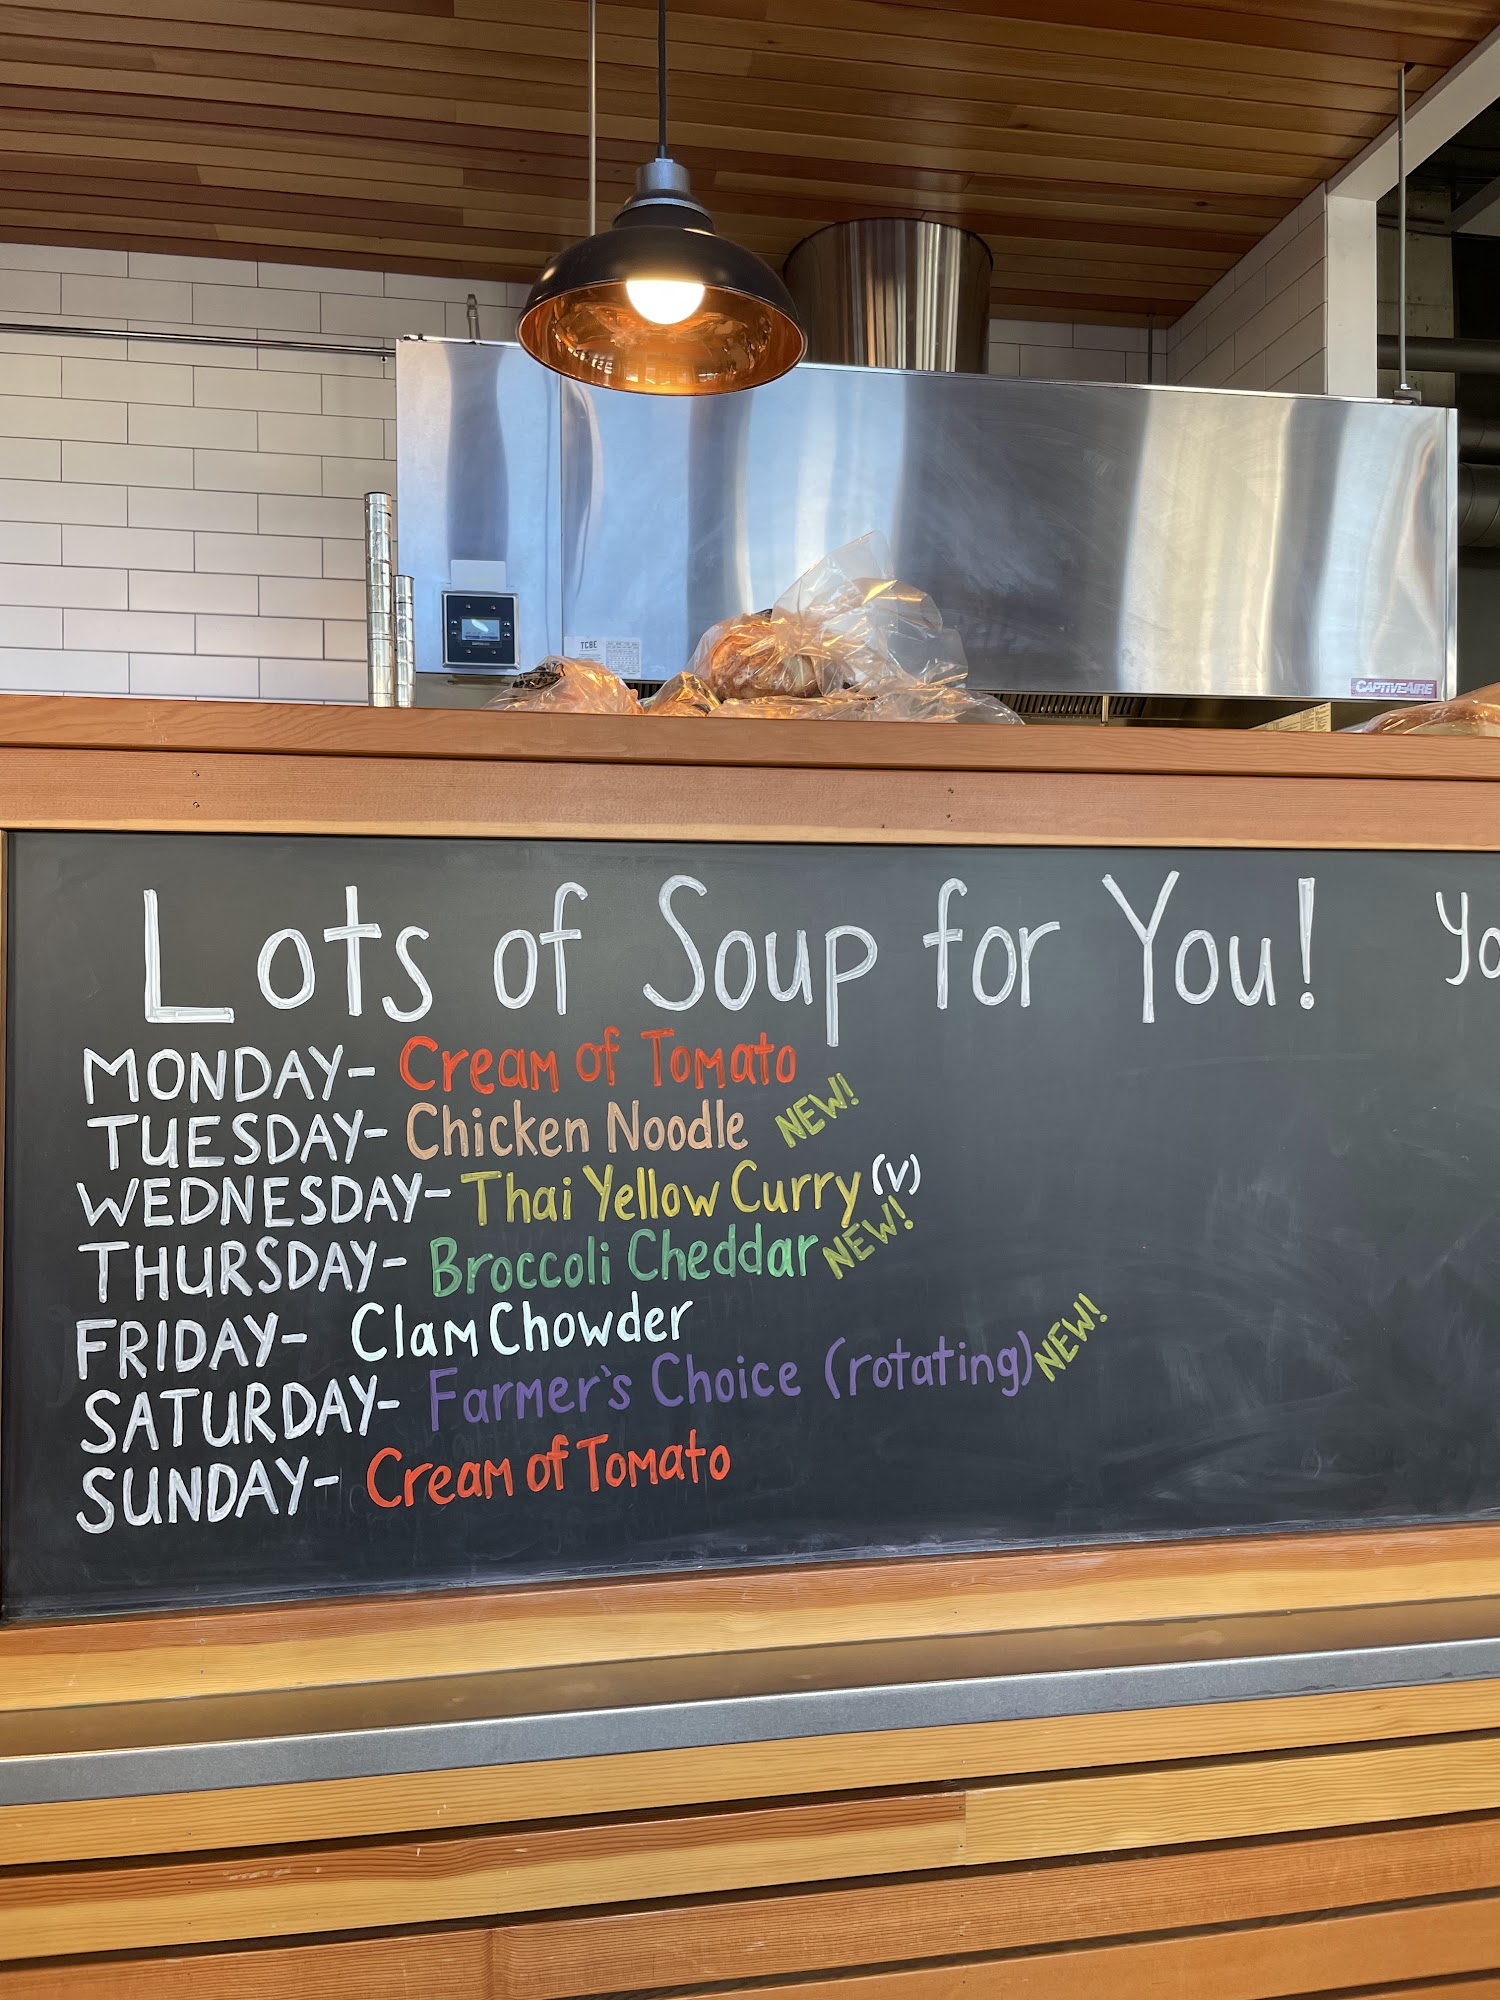 TCBE
CAPTIVEAIRE
Lots of Soup for You!
MONDAY- Cream of Tomato
TUESDAY- Chicken Noodle NEW!
WEDNESDAY- Thai Yellow Curry (V)
THURSDAY- Broccoli Cheddar NEW!
FRIDAY- Clam Chowder
SATURDAY- Farmer's Choice (rotating) NEW!
SUNDAY- Cream of Tomato